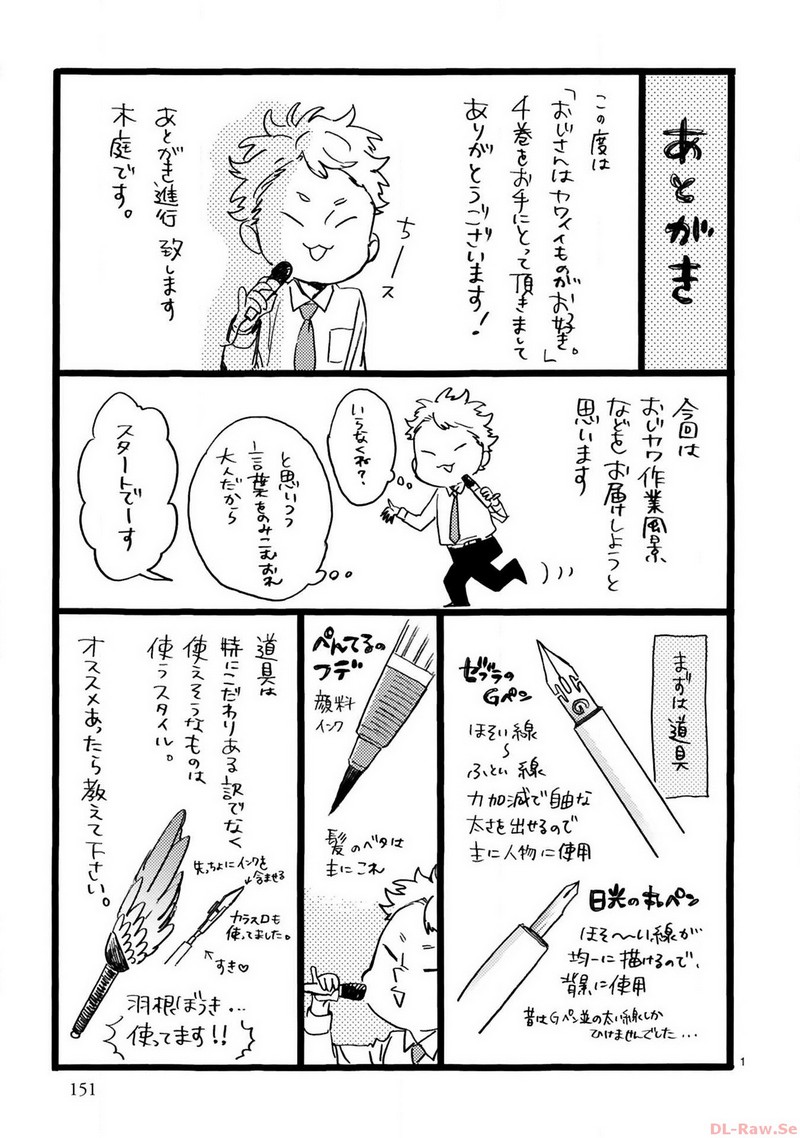 あとがき
この度は
「おじさんはカワイイものがお好き。」
4巻をお手にとって頂きまして
ありがとうございます！
ちーース
あとがき進行 致します
木庭です。
今回は
おじカワ作業風景
などをお届けしようと
思います
いらなくね？
と思いつつ
言葉をのみこむおれ
大人だから
スタートでーす
まずは道具
ゼブラの
Gペン
ほそい線
〜
ふとい線
力加減で自由な
太さを出せるので
主に人物に使用
日光の丸ペン
ほそ〜〜い線が
均一に描けるので、
背景に使用
昔はGペン並の太い線しか
ひけませんでした…
ぺんてるの
フデ
顔料
インク
髪のベタは
主にこれ
道具は
特にこだわりある訳でなく
使えそうなものは
使うスタイル。
オススメあったら教えて下さい。
先っちょにインクを
含ませる
カラス口も
使ってました。
すき♡
羽根ぼうき…
使ってます!!
1
151
DL-Raw.Se